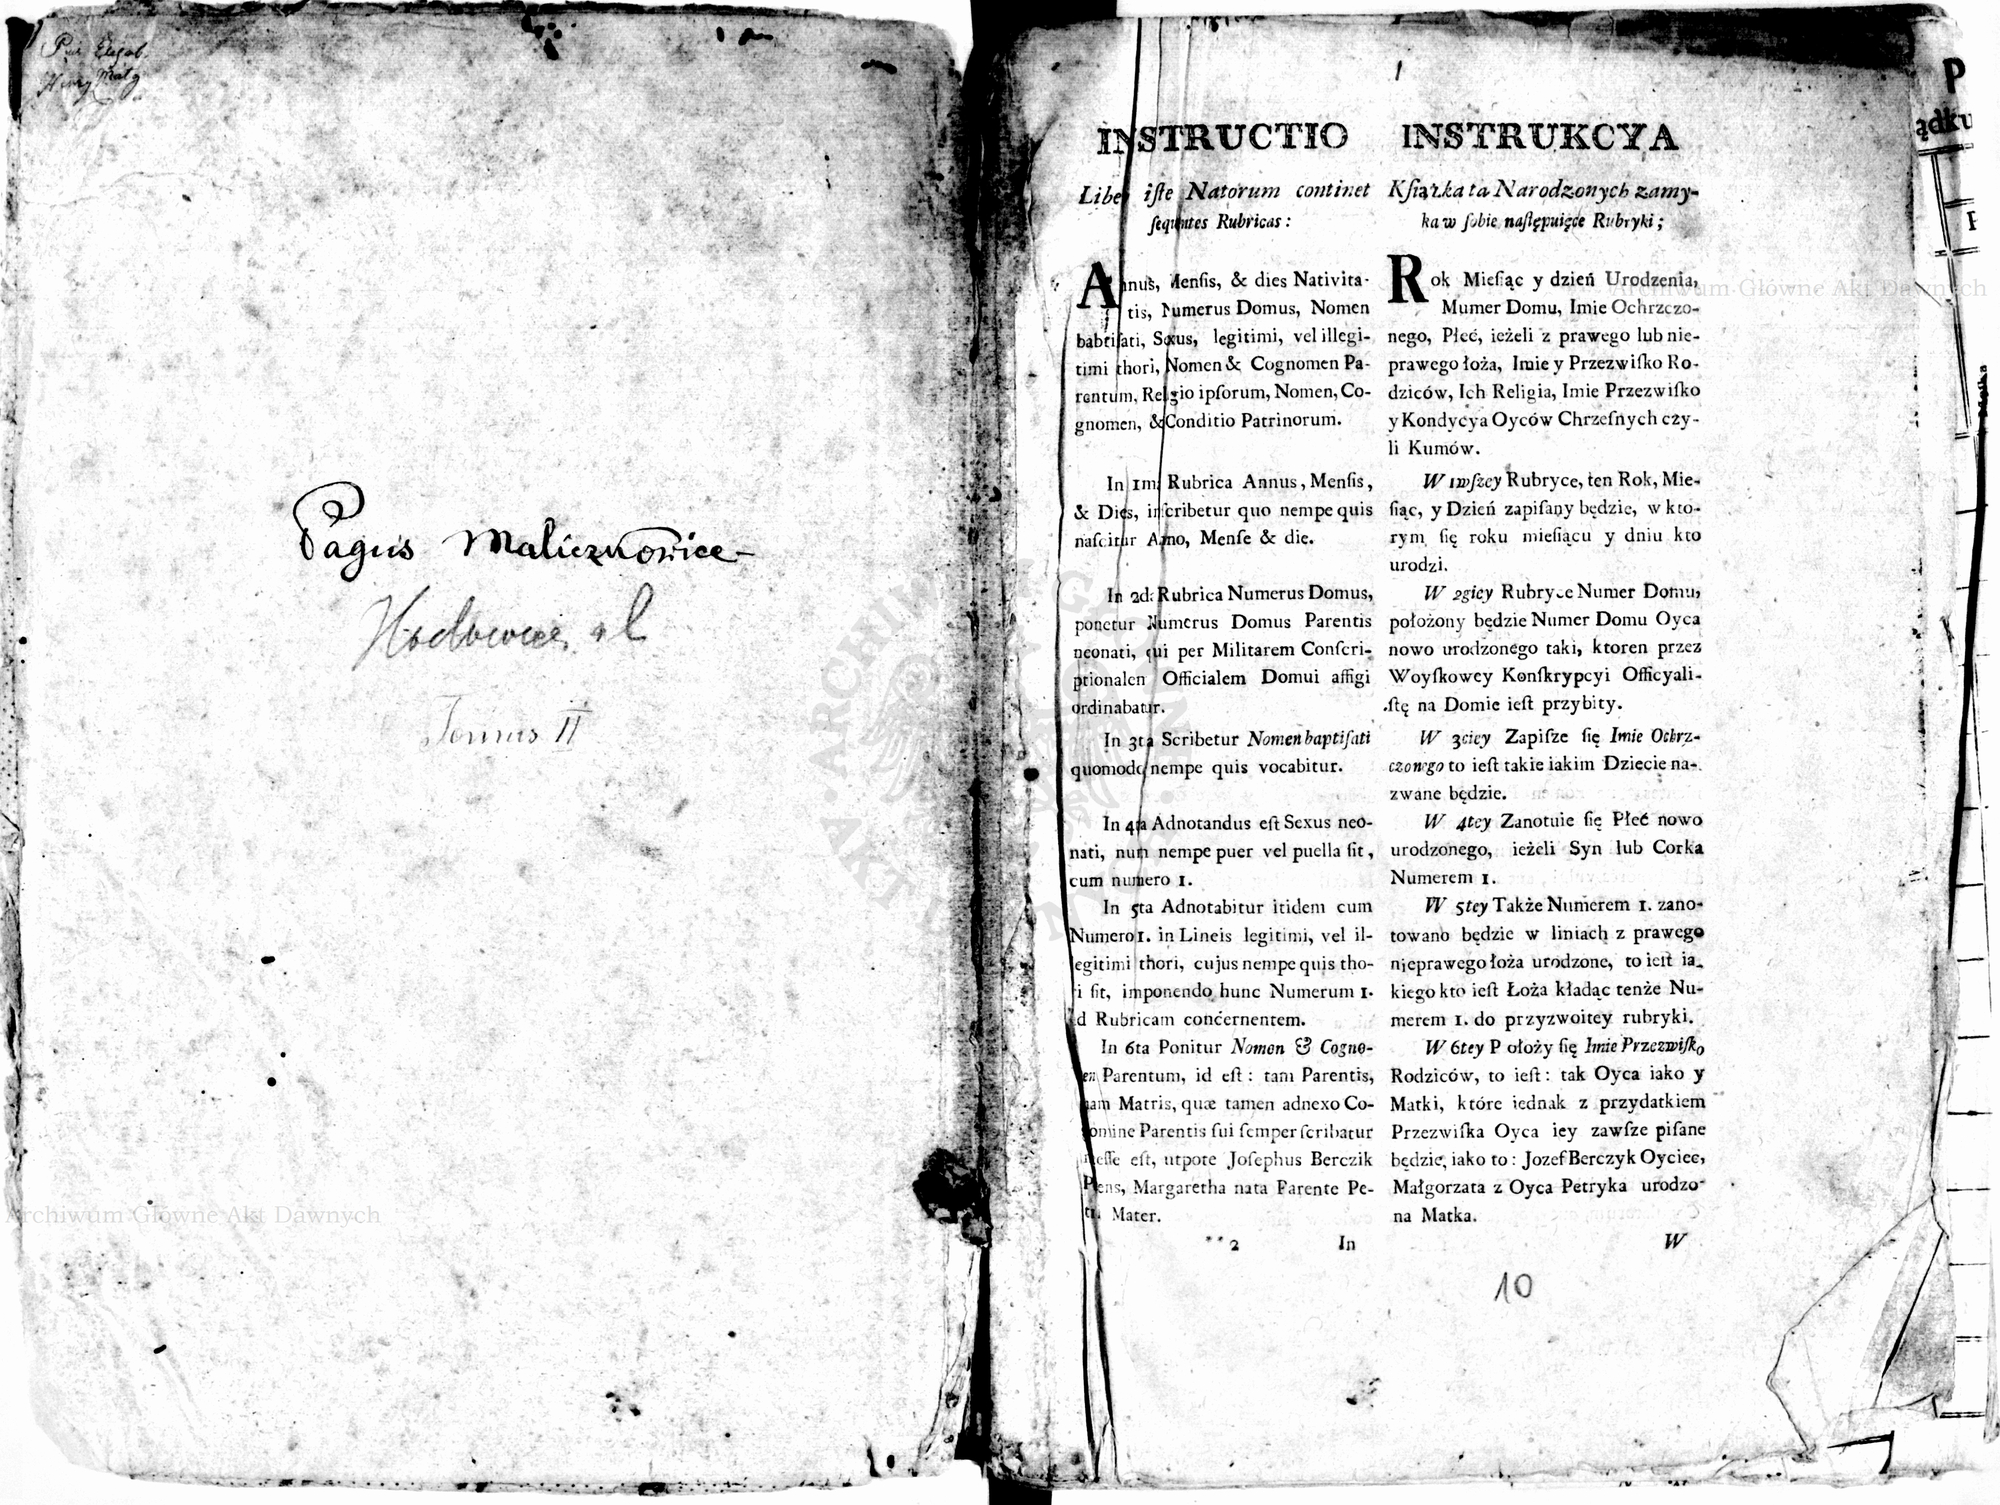 Pagus Maliczkowice
Tomus II
INSTRUCTIO
Liber iſte Natorum continet
ſequntes Rubricas:
Annus, Menſis, & dies Nativita-
tis, Numerus Domus, Nomen
babtiſati, Sexus, legitimi, vel illegi-
timi thori, Nomen & Cognomen Pa-
rentum, Religio ipſorum, Nomen, Co-
gnomen, & Conditio Patrinorum.
In 1ma Rubrica Annus, Menſis,
& Dies, inſcribetur quo nempe quis
naſcitur Anno, Menſe & die.
In 2da Rubrica Numerus Domus,
ponetur Numerus Domus Parentis
neonati, qui per Militarem Conſcri-
ptionalen Officialem Domui affigi
ordinabatur.
In 3ta Scribetur Nomen baptiſati
quomodo nempe quis vocabitur.
In 4ta Adnotandus eſt Sexus neo-
nati, num nempe puer vel puella ſit,
cum numero 1.
In 5ta Adnotabitur itidem cum
Numero 1. in Lineis legitimi, vel il-
egitimi thori, cujus nempe quis tho-
ri ſit, imponendo hunc Numerum 1.
d Rubricam concernentem.
In 6ta Ponitur Nomen & Cogno-
en Parentum, id eſt: tam Parentis,
uam Matris, quæ tamen adnexo Co-
omine Parentis ſui ſemper ſcribatur
neſſe eſt, utpote Joſephus Berczik
Pens, Margaretha nata Parente Pe-
tri. Mater.
**2 In
INSTRUKCYA
Kſiążka ta Narodzonych zamy-
ka w ſobie naſtępuięce Rubryki;
Rok Mieſiąc y dzień Urodzenia,
Mumer Domu, Imie Ochrzczo-
nego, Płeć, ieżeli z prawego lub nie-
prawego łoża, Imie y Przezwiſko Ro-
dziców, Ich Religia, Imie Przezwiſko
y Kondycya Oyców Chrzeſnych czy-
li Kumów.
W 1wſzey Rubryce, ten Rok, Mie-
ſiąc, y Dzień zapiſany będzie, w kto-
rym ſię roku mieſiącu y dniu kto
urodzi.
W 2giey Rubryce Numer Domu,
położony będzie Numer Domu Oyca
nowo urodzonego taki, ktoren przez
Woyſkowey Konſkrypcyi Officyali-
ſtę na Domie ieſt przybity.
W 3ciey Zapiſze ſię Imie Ochrz-
czonego to ieſt takie iakim Dziecie na-
zwane będzie.
W 4tey Zanotuie ſię Płeć nowo
urodzonego, ieżeli Syn lub Corka
Numerem 1.
W 5tey Także Numerem 1. zano-
towano będzie w liniach z prawego
nieprawego łoża urodzone, to ieſt ia-
kiego kto ieſt Łoża kładąc tenże Nu-
merem 1. do przyzwoitey rubryki.
W 6tey P ołoży ſię Imie Przezwiſko
Rodziców, to ieſt: tak Oyca iako y
Matki, które iednak z przydatkiem
Przezwiſka Oyca iey zawſze piſane
będzie, iako to: Jozef Berczyk Oyciec,
Małgorzata z Oyca Petryka urodzo-
na Matka.
W
10
P
ądku
Archiwum Główne Akt Dawnych
Archiwum Główne Akt Dawnych